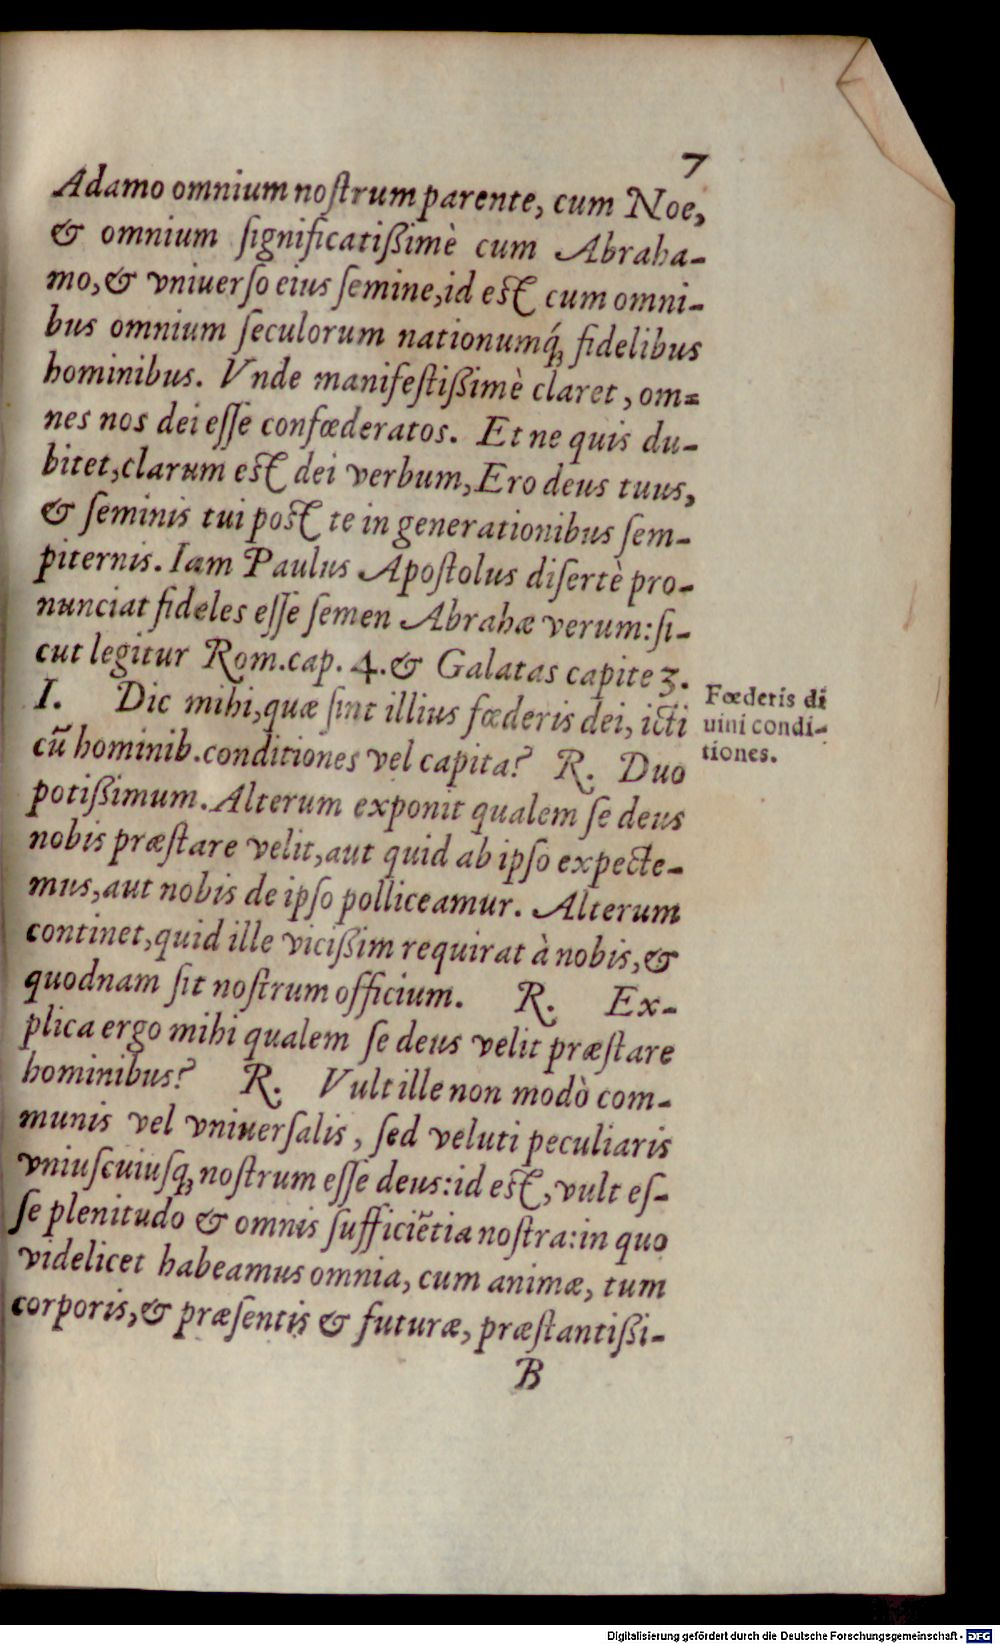 7
Adamo omnium noſtrum parente, cum Noe,
& omnium ſignificatißimè cum Abraha-
mo, & vniuerſo eius ſemine, id eſt cum omni-
bus omnium ſeculorum nationumq́ꝫ fidelibus
hominibus. Vnde manifeſtißimè claret, om=
nes nos dei eſſe confœderatos. Et ne quis du-
bitet, clarum eſt dei verbum, Ero deus tuus,
& ſeminis tui poſt te in generationibus ſem-
piternis. Iam Paulus Apoſtolus diſertè pro-
nunciat fideles eſſe ſemen Abrahæ verum: ſi-
cut legitur Rom. cap. 4. & Galatas capite 3.
I. Dic mihi, quæ ſint illius fœderis dei, icti
cū hominib. conditiones vel capita? R. Duo
potißimum. Alterum exponit qualem ſe deus
nobis præſtare velit, aut quid ab ipſo expecte-
mus, aut nobis de ipſo polliceamur. Alterum
continet, quid ille vicißim requirat à nobis, &
quodnam ſit noſtrum officium. R. Ex-
plica ergo mihi qualem ſe deus velit præſtare
hominibus? R. Vult ille non modò com-
munis vel vniuerſalis, ſed veluti peculiaris
vniuſcuiuſqꝫ noſtrum eſſe deus: id eſt, vult eſ-
ſe plenitudo & omnis ſufficiētia noſtra: in quo
videlicet habeamus omnia, cum animæ, tum
corporis, & præſentis & futuræ, præſtantißi-
B
Fœderis di
uini condi-
tiones.
Digitalisierung gefördert durch die Deutsche Forschungsgemeinschaft - DFG